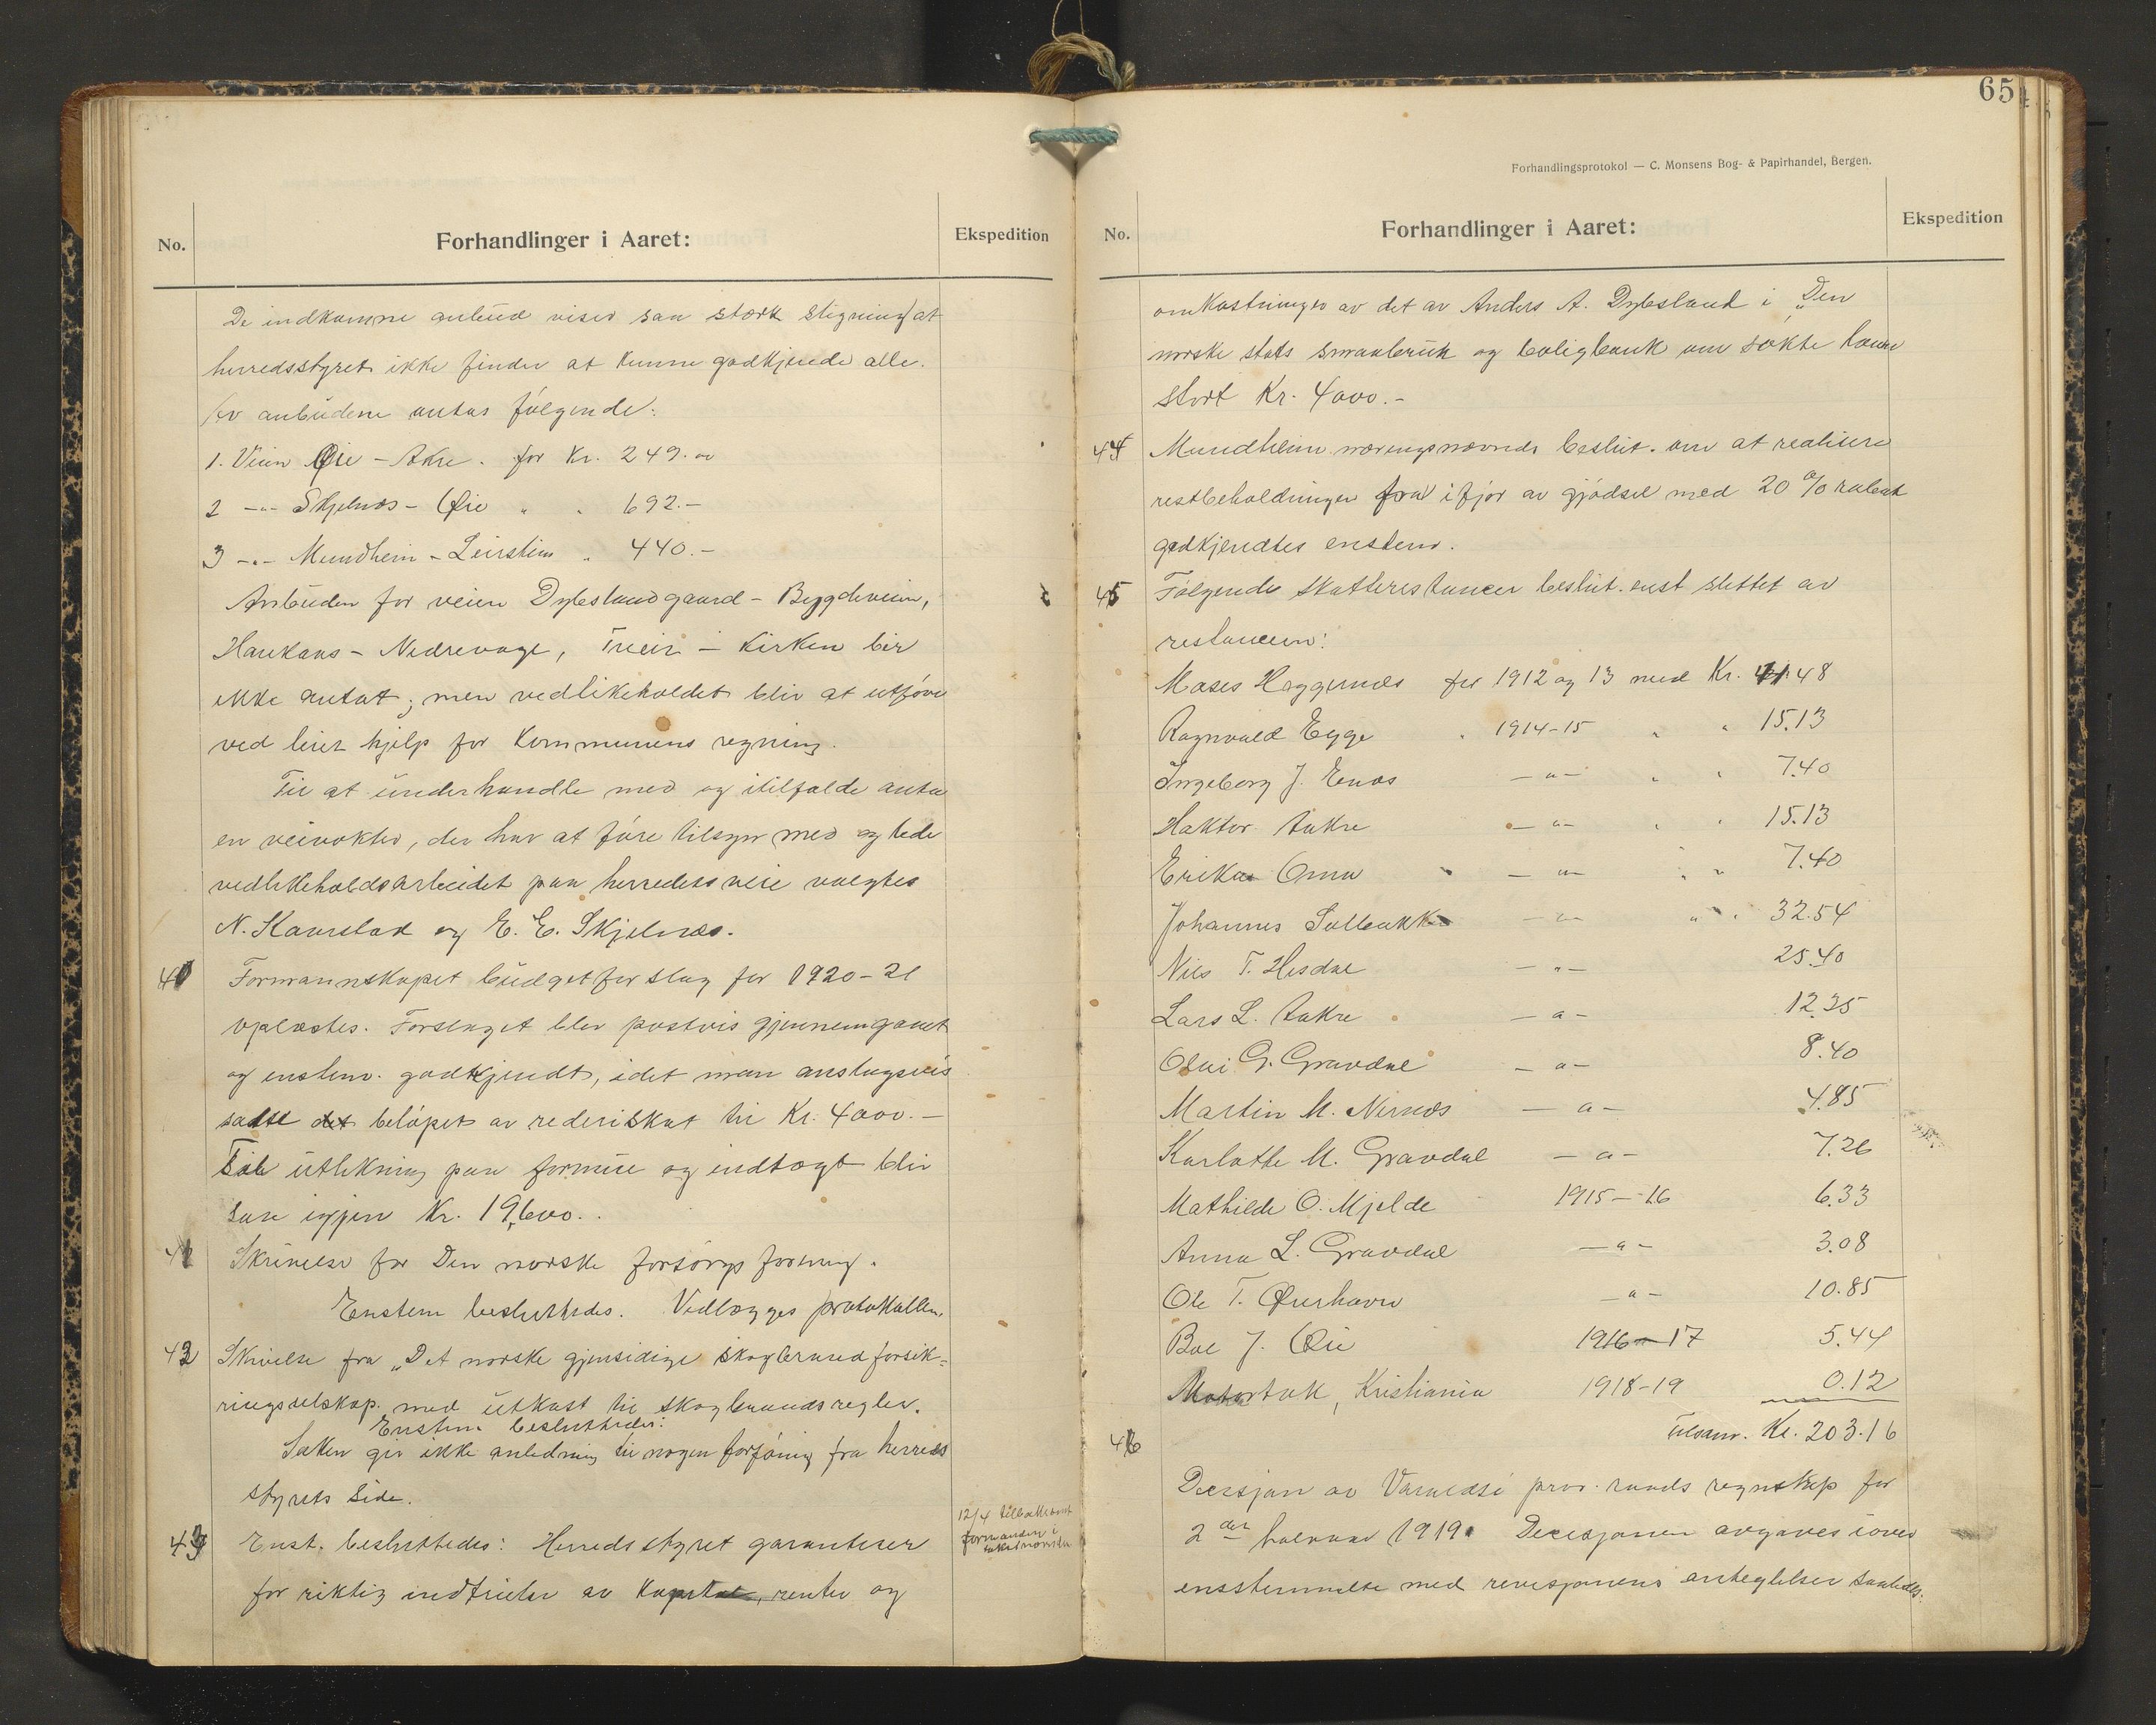 No.
Forhandlinger i Aaret:
Ekspedition
De indkomne anbud viser saa stærk stigning at
herredsstyret ikke finder at kunne godkjende alle.
Av anbudene antas følgende:
1. Veien Øie - Akre. for Kr. 249.00
2 -"- Skjelnæs - Øie " " 692.-
3 -"- Mundheim - Leirstien " 440.-
Anbuden for veien Dybesland gaard - Bygdeveien,
Haukaas - Nedrevage, - Kirken bir
ikke antat; men vedlikeholdet blir at utføre
ved leiet hjelp for kommunens regning.
Til at underhandle med og itilfælde anta
en veivokter, der har at føre tilsyn med og lede
vedlikeholdsarbeidet paa herredets veie valgtes
N. Kaurstad og E. E. Skjelnæs.
40 Formannskapet budgetforslag for 1920-21
oplæstes. Forslaget blev postvis gjennemgaaet
og enstem. godkjendt, idet man anslagsvis
satte det beløpet av rederiskat til Kr. 4000.-
Til utlikning paa formue og indtægt blir
saa igjen Kr. 19,600..
41 Skrivelse for Den norske forsørgs forening.
Enstem besluttedes. Vedlægges protokollen.
42 Skrivelse fra "Det norske gjensidige skogbrandforsik-
ringsselskap. med utkast til skogbrandsregler.
Enstem. besluttedes:
Saken gir ikke anledning til nogen forføinig fra herreds
styrets side.
43 Enst. besluttedes: Herredsstyret garanterer
12/4 tilbakesent
formanden i
for riktig indfrielse av kapital, renter og
65
Forhandlingsprotokol — C. Monsens Bog- & Papirhandel, Bergen.
No.
Forhandlinger i Aaret:
Ekspedition
omkostninger av det av Anders A. Dybesland i "Den
norske stats smaabruk og boligbank om søkte laan
stort Kr. 4000.-
44 Mundheim næringsnævnds beslut. om at realisere
restbeholdningen fra ifjor av gjødsel med 20 % rabat
godkjendtes enstem.
45 Følgende skatterestancer beslut. enst slettet av
restancen:
Moses Heggernæs for 1912 og 13 med Kr. 41.48
Ragnvald Egge " 1914-15 " " 15.13
Ingeborg J. Enæs -"- " " 7.40
Haktor Aakre -"- " " 15.13
Erika Oma " -"- " " 7.40
Johannes Solbakke -"- " " 32.54
Nils T. Hisdal -"- 25.40
Lars L. Aakre -"- 12.35
Olai G. Gravdal -"- 8.40
Martin M. Nernæs -"- 4.85
Karlotte M. Gravdal -"- 7.26
Mathilde O. Mjelde 1915-16 6.33
Anna L. Gravdal -"- 3.08
Ole T. Øierhavn -"- 10.85
Boe J. Øie 1916-17 5.44
Motortak, Kristiania 1918-19 0.12
Tilsam. Kr. 203.16
46
Decisjon av Varaldsø prov. raads regnskap for
2den halvaar 1919. Decisjonen avgaves iover
ensstemmelse med revisjonens antegtelser saaledes: